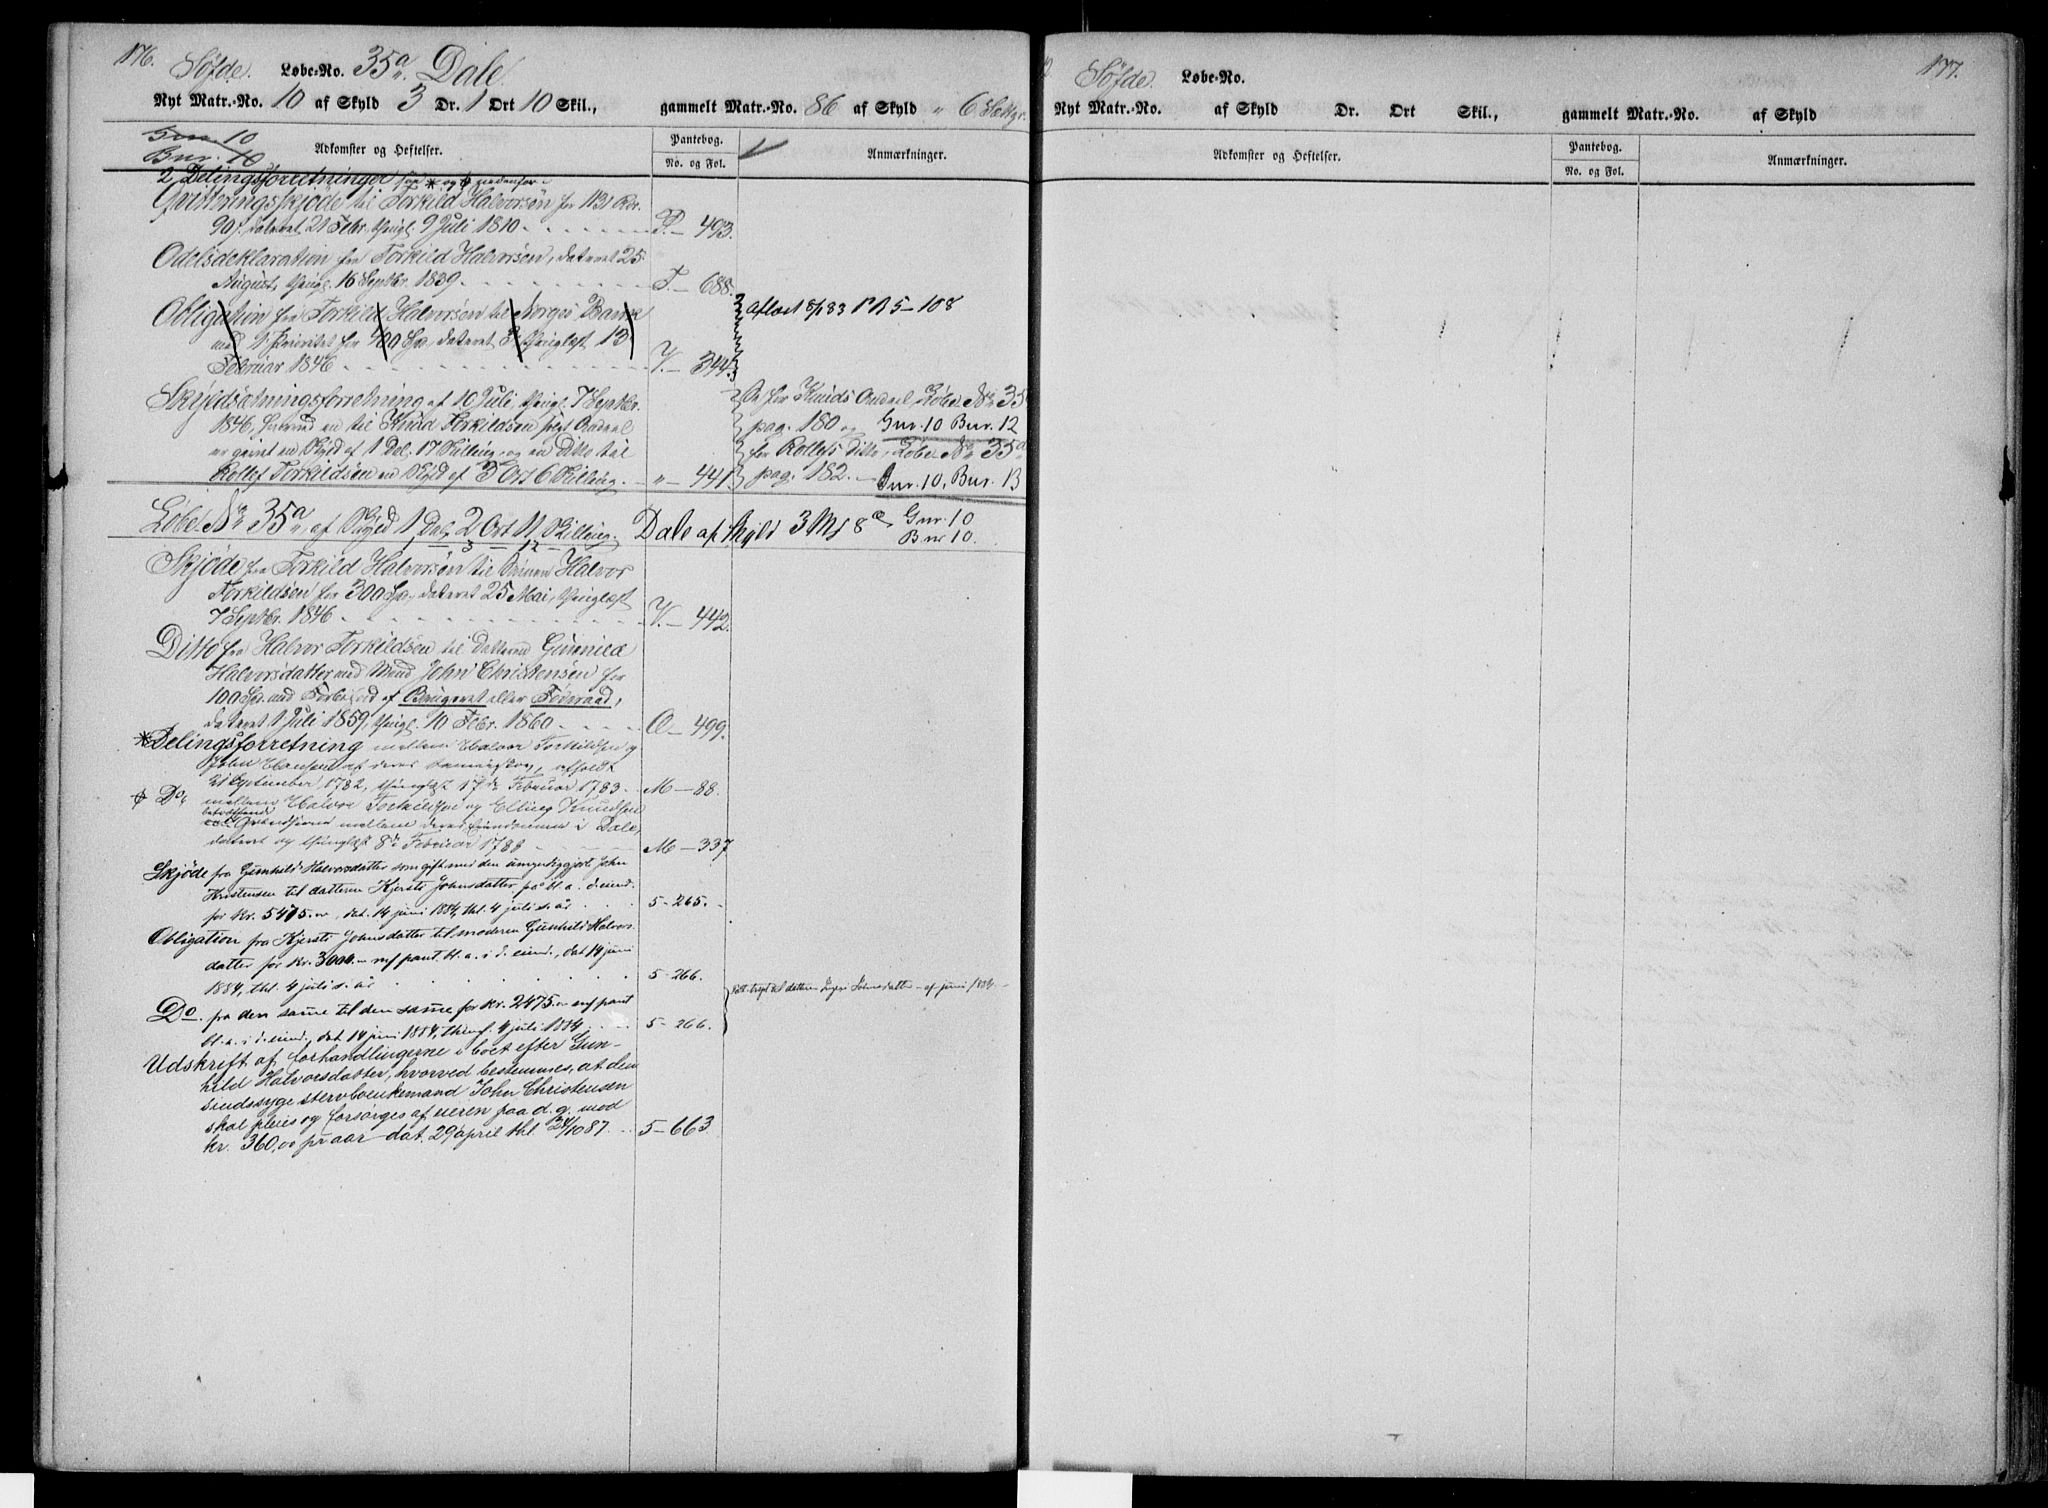 176.
Söfde. Løbe-No. 35a. Dale.
Nyt Matr.-No. 10 af Skyld 3 Dr. 1 Ort 10 Skil., gammelt Matr.-No. 86 af Skyld " 6 Sættgr.
Gnr. 10
Bnr. 10
Adkomster og Heftelser.
Pantebog.
No. og Fol.
Anmærkninger.
2 Delingsforretninger see * og ϕ nedenfor.
Qvitteringsskjöde til Torkild Halvorsön for 1131 Rdr.
90 s. dateret 21 Febr., thingl. 9 Juli 1810 P. - 493.
Odelsdeklaration fra Torkild Halvorsön, dateret 25
August, thingl. 16 Septbr. 1839 T. - 688.
Obligation fra Torkild Halvorsön til Norges Bank Aflæst 8/1 83 P B 5-108
med 1 Prioritet for 100 Sp., dateret 3, thinglæst 13
Februar 1846 V. - 344.
Skyldsætningsforretning af 10 Juli, thingl. 7 Septbr.
1846, hvorved en til Knud Torkildsön solgt Andeel
er givet en Skyld af 1 Dal. 17 Skilling, og en Ditto til
Rollef Torkildsön en Skyld af 3 Ort 6 Skilling. " - 441.
Se for Knuds Andeel, Löbe No 35
pag. 180 og Gnr. 10 Bnr. 12
for Rollefs Ditto, Löbe No 35d
pag. 182. - Gnr. 10, Bnr. 13
Löbe No 35a, af Skyld 1 Dal. 2 Ort 11 Skilling. Dale af skyld 3 Mk 8 Øre Gnr. 10
3 12 Bnr 10.
Skjöde fra Torkild Halvorsön til Sönnen Halvor
Torkildsön for 300 Sp., dateret 25 Mai, thinglæst
7 Septbr. 1846 V. - 442.
Ditto fra Halvor Torkildsön til Datteren Gunnild
Halvorsdatter med Mand John Christensön for
100 Sp. med Forbehold af Brugeret eller Föderaad,
dateret 1 Juli 1859, thingl. 10 Febr. 1860 Œ - 499.
* Delingsforretning mellem Halvor Torkildsen og
John Hansen af deres Sameieskov, afholdt
21 September 1782, thinglæst 17de Februar 1783. M - 88.
ϕ Do. mellem Halvor Torkildsen og Elling Knudsen
betræffende
Grændserne mellem deres Eiendomme i Dale,
dateret og thinglæst 8de Februar 1788 M - 337
Skjöde fra Gunhild Halvorsdatter som gift med den umyndiggjorte John
Kristensen til datteren Kjersti Johnsdatter på bl. a. d. eiend.
for kr. 5475.00, dat. 14 juni 1884, thl. 4 juli s. år 5-265.
Obligation fra Kjersti Johnsdatter til moderen Gunhild Halvors
datter for kr. 3000.- m/ pant bl. a. i d. eiend., dat 14 juni
1884, thl. 4 juli s. år 5-266.
Do. fra den samme til den samme for kr. 2475.00 m/ pant
bl. a. i d. eiend., dat 14 juni 1884, thingl. 4 juli 1884 5-266.
til datteren Johnsdatter af juni 1884.
Udskrift af forhandlingerne i boet efter Gun-
hild Halvorsdatter, hvorved bestemmes, at den
sindssyge stervboenkemand John Christensen
skal pleies og forsørges af eieren paa d. g. mod
kr. 360,00 pr aar dat. 29 april thl. 24/10 87. 5-663.
177.
Söfde. Løbe-No.
Nyt Matr.-No. af Skyld Dr. Ort Skil., gammelt Matr.-No. af Skyld
Adkomster og Heftelser.
Pantebog.
No. og Fol.
Anmærkninger.